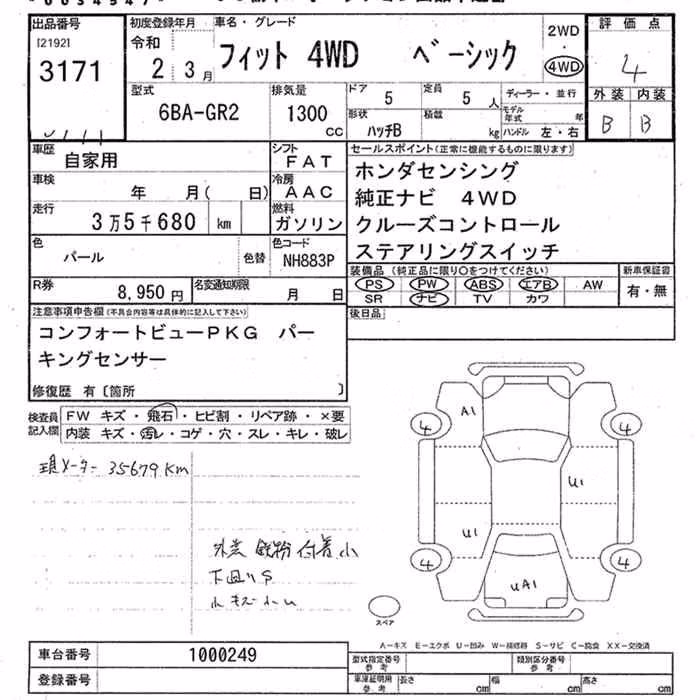 出品番号
[2192]
3171
初度登録年月
令和
2 3月
車名・グレード
フィット 4WD ベーシック
2WD
・
4WD
評価点
4
外装 内装
B B
型式
6BA-GR2
排気量
1300
CC
ドア
5
定員
5 人
ディーラー・並行
形状
ハッチB
積載
kg
モデル年式
年
ハンドル 左・右
車歴
自家用
シフト
FAT
車検
年 月( 日)
冷房
AAC
走行
3万5千680 km
燃料
ガソリン
色
パール
色替
色コード
NH883P
R券
8,950円
名変通知期限
月 日
セールスポイント(正常に機能するものに限ります)
ホンダセンシング
純正ナビ 4WD
クルーズコントロール
ステアリングスイッチ
装備品 (純正品に限り○をつけてください)
PS PW ABS エアB AW
SR ナビ TV カワ
新車保証書
有・無
後日品
注意事項申告欄(不具合内容等は具体的に記入して下さい)
コンフォートビューPKG パー
キングセンサー
修復歴 有〔箇所 〕
検査員
記入欄
FW キズ・飛石・ヒビ割・リペア跡・×要
内装 キズ・汚レ・コゲ・穴・スレ・キレ・破レ
現メーター 35679km
外装 鉄粉付着小
下廻りS
小キズ小U
A1
4 4
U1
U1
4 4
UA1
スペア
A-キズ E-エクボ U-凹み W-補修跡 S-サビ C-腐食 XX-交換済
車台番号
1000249
登録番号
型式指定番号
参考
類別区分番号
参考
車庫証明用
参考
長さ cm
幅 cm
高さ cm